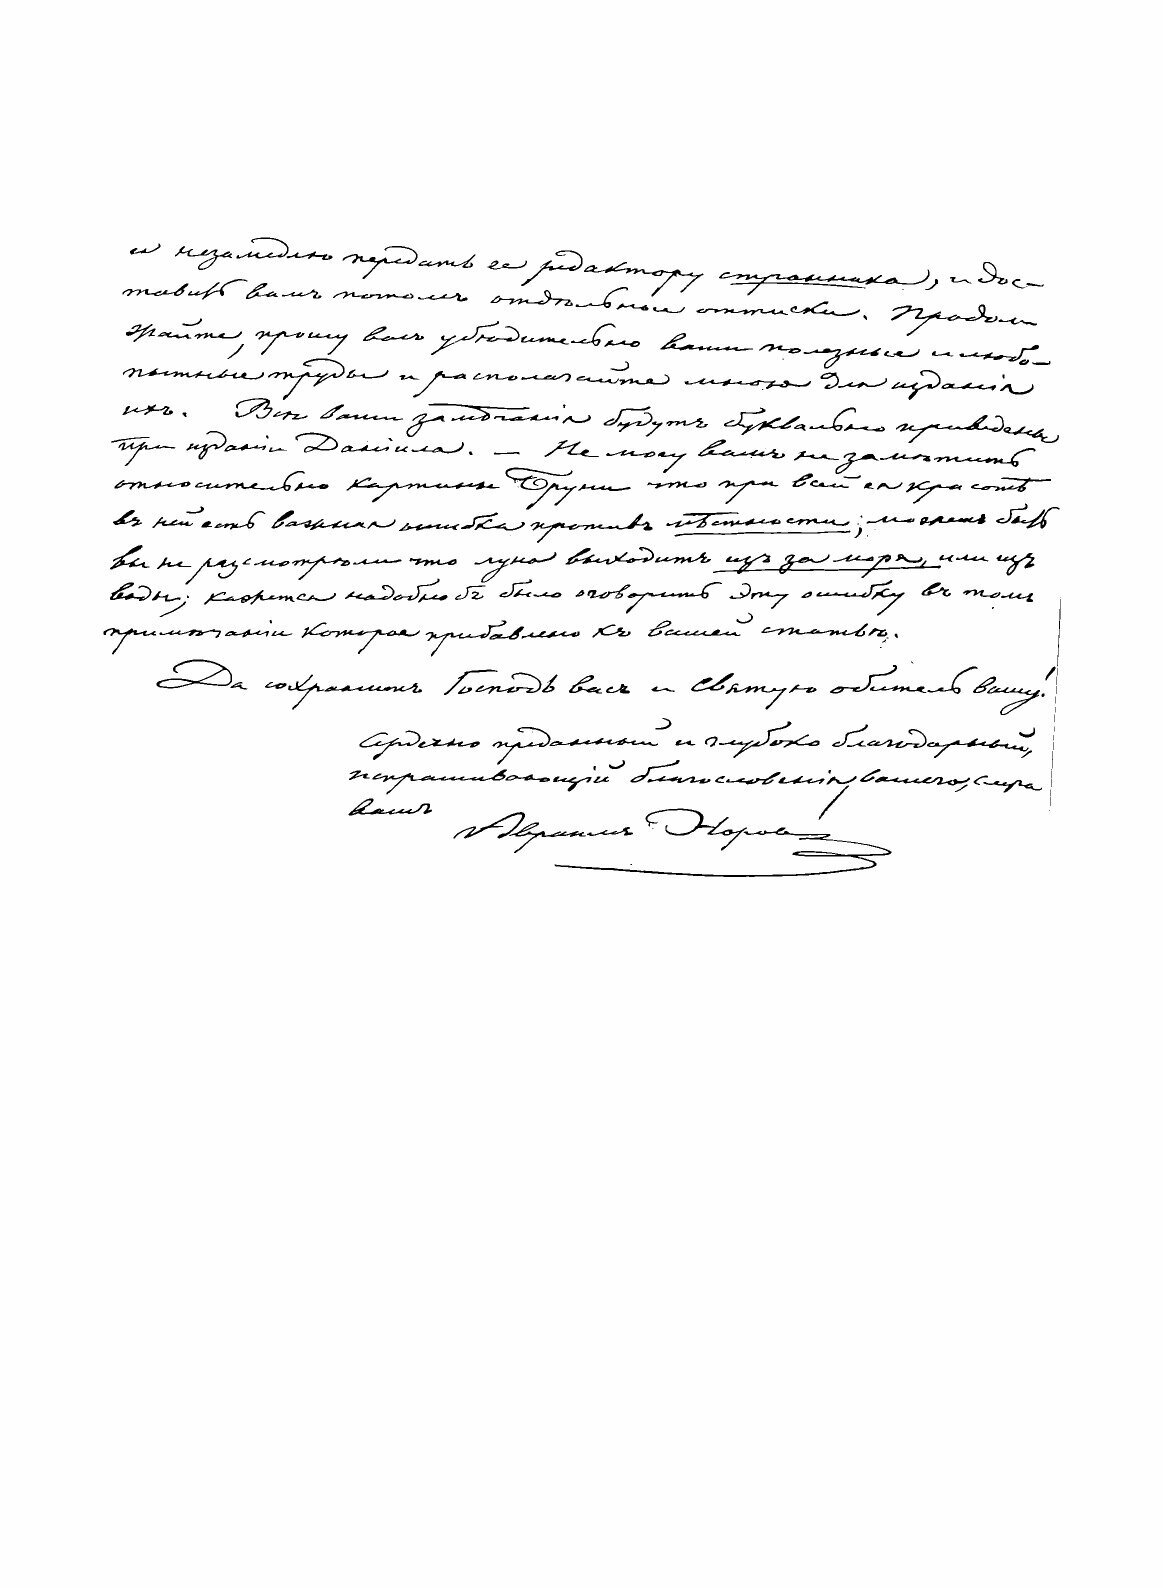 и незамедлю передать ее редактору странника, и дос-
тавить вамъ потомъ отдѣльные оттиски. Продол
жайте, прошу васъ убѣдительно ваши полезные и любо-
пытные труды и располагайте мною для изданія
ихъ. Всѣ ваши замѣчанія будутъ буквально приведены
при изданіи Даніила. — Не могу вамъ не замѣтить
относительно картины Бруни что при всей ея красотѣ
въ ней есть важная ошибка противъ мѣстности; можетъ быть
вы не разсмотрѣли что луна выходитъ изъ за моря, или изъ
воды; кажется надобно бъ было оговорить эту ошибку въ томъ
примѣчаніи которое прибавлено къ вашей статьѣ.
Да сохранитъ Господь васъ и Святую обитель вашу!
Сердечно преданный и глубоко благодарный,
испрашивающій благословенія вашего, слуга
вашъ
Авраамъ Норовъ